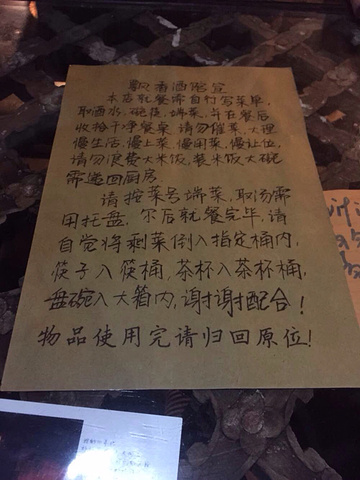 飘香酒馆宣
本店就餐需自行写菜单,
取酒水,碗筷,端菜,并在餐后
收拾干净餐桌,请勿催菜,大理
慢生活,慢上菜,慢用菜,慢让位,
请勿浪费大米饭,装米饭大碗
需送回厨房
请按菜号端菜,取汤需
用托盘,尔后就餐完毕,请
自觉将剩菜倒入指定桶内,
筷子入筷桶,茶杯入茶杯桶,
盘碗入大箱内,谢谢配合!
物品使用完请归回原位!